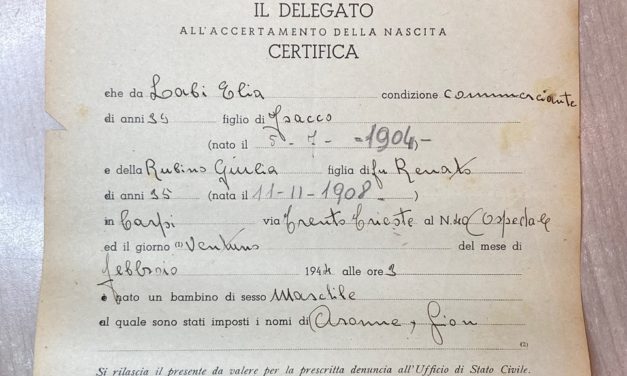 IL DELEGATO
ALL'ACCERTAMENTO DELLA NASCITA
CERTIFICA
che da Labi Elia condizione commerciante
di anni 39 figlio di Isacco
(nato il 5 - 7 - 1904 - )
e della Rubino Giulia figlia di fu Renato
di anni 35 (nata il 11-11-1908 - )
in Carpi via Trento Trieste al N. Ospedale
ed il giorno (1) Ventuno del mese di
febbraio 1944 alle ore 3
è nato un bambino di sesso Maschile
al quale sono stati imposti i nomi di Aronne,
(2)
Si rilascia il presente da valere per la prescritta denuncia all'Ufficio di Stato Civile.